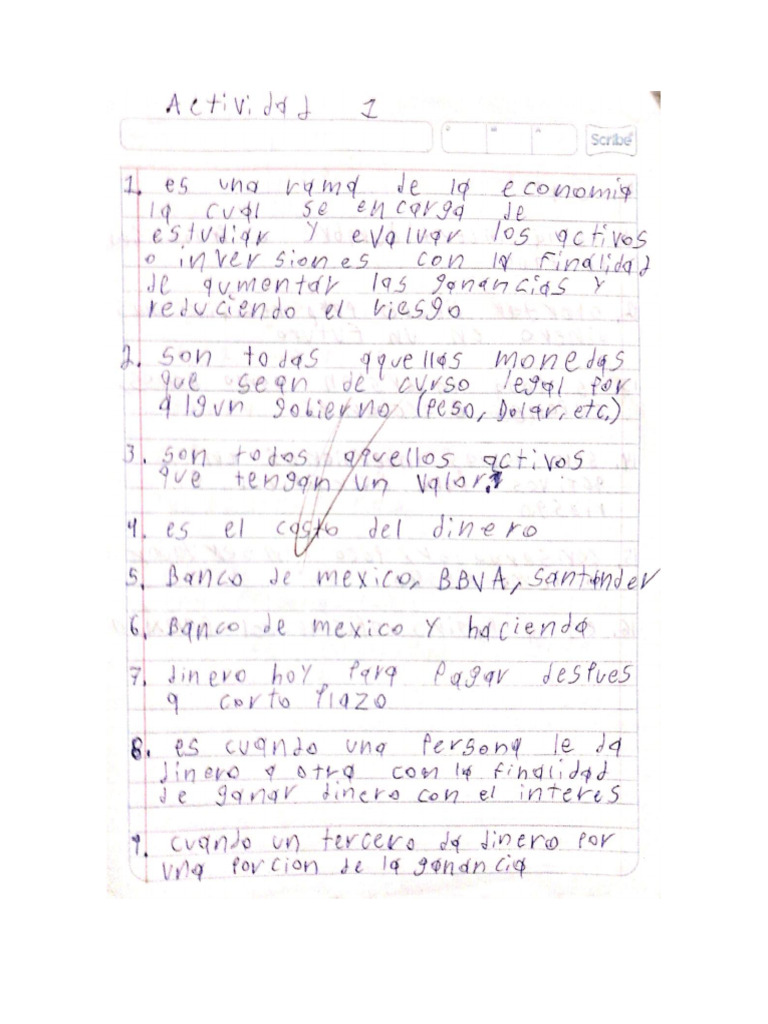 Actividad 1
Scribe
1. es una rama de la economia
la cual se encarga de
estudiar y evaluar los activos
o inversiones con la finalidad
de aumentar las ganancias y
reduciendo el riesgo
2. son todas aquellas monedas
que sean de curso legal por
algun gobierno (Peso, Dolar, etc.)
3. son todos aquellos activos
que tengan un valor.
4. es el costo del dinero
5. Banco de mexico, BBVA, Santander
6. Banco de mexico y hacienda
7. dinero hoy para pagar despues
a corto plazo
8. es cuando una persona le da
dinero a otra com la finalidad
de ganar dinero con el interes
9. cuando un tercero da dinero por
una porcion de la ganancia